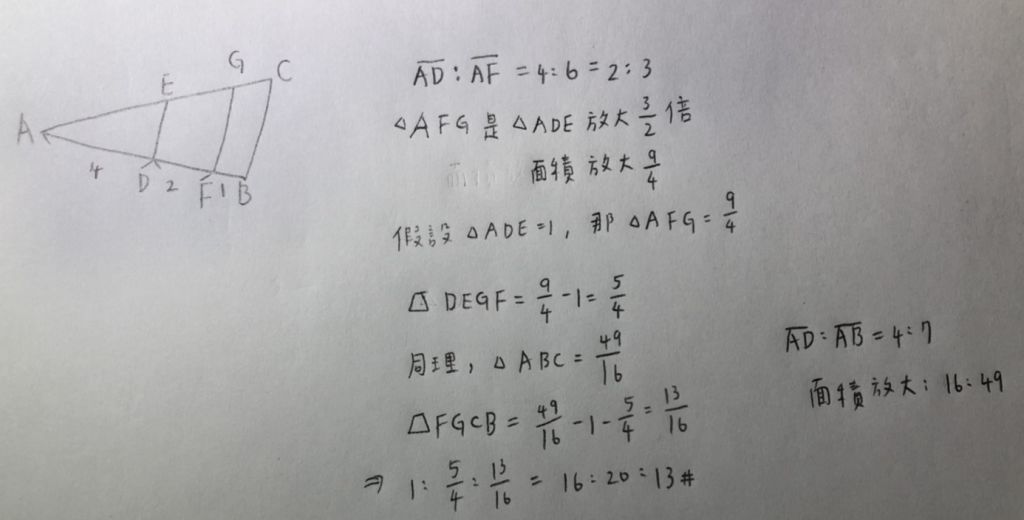 A
E
G
C
4
D
2
F
1
B
AD : AF = 4:6 = 2:3
△AFG 是 △ADE 放大 3/2 倍
面積 放大 9/4
假設 △ADE=1, 那 △AFG = 9/4
⏢ DEGF = 9/4 - 1 = 5/4
同理, △ABC = 49/16
⏢FGCB = 49/16 - 1 - 5/4 = 13/16
⇒ 1 : 5/4 : 13/16 = 16 : 20 : 13 #
AD : AB = 4:7
面積放大: 16:49